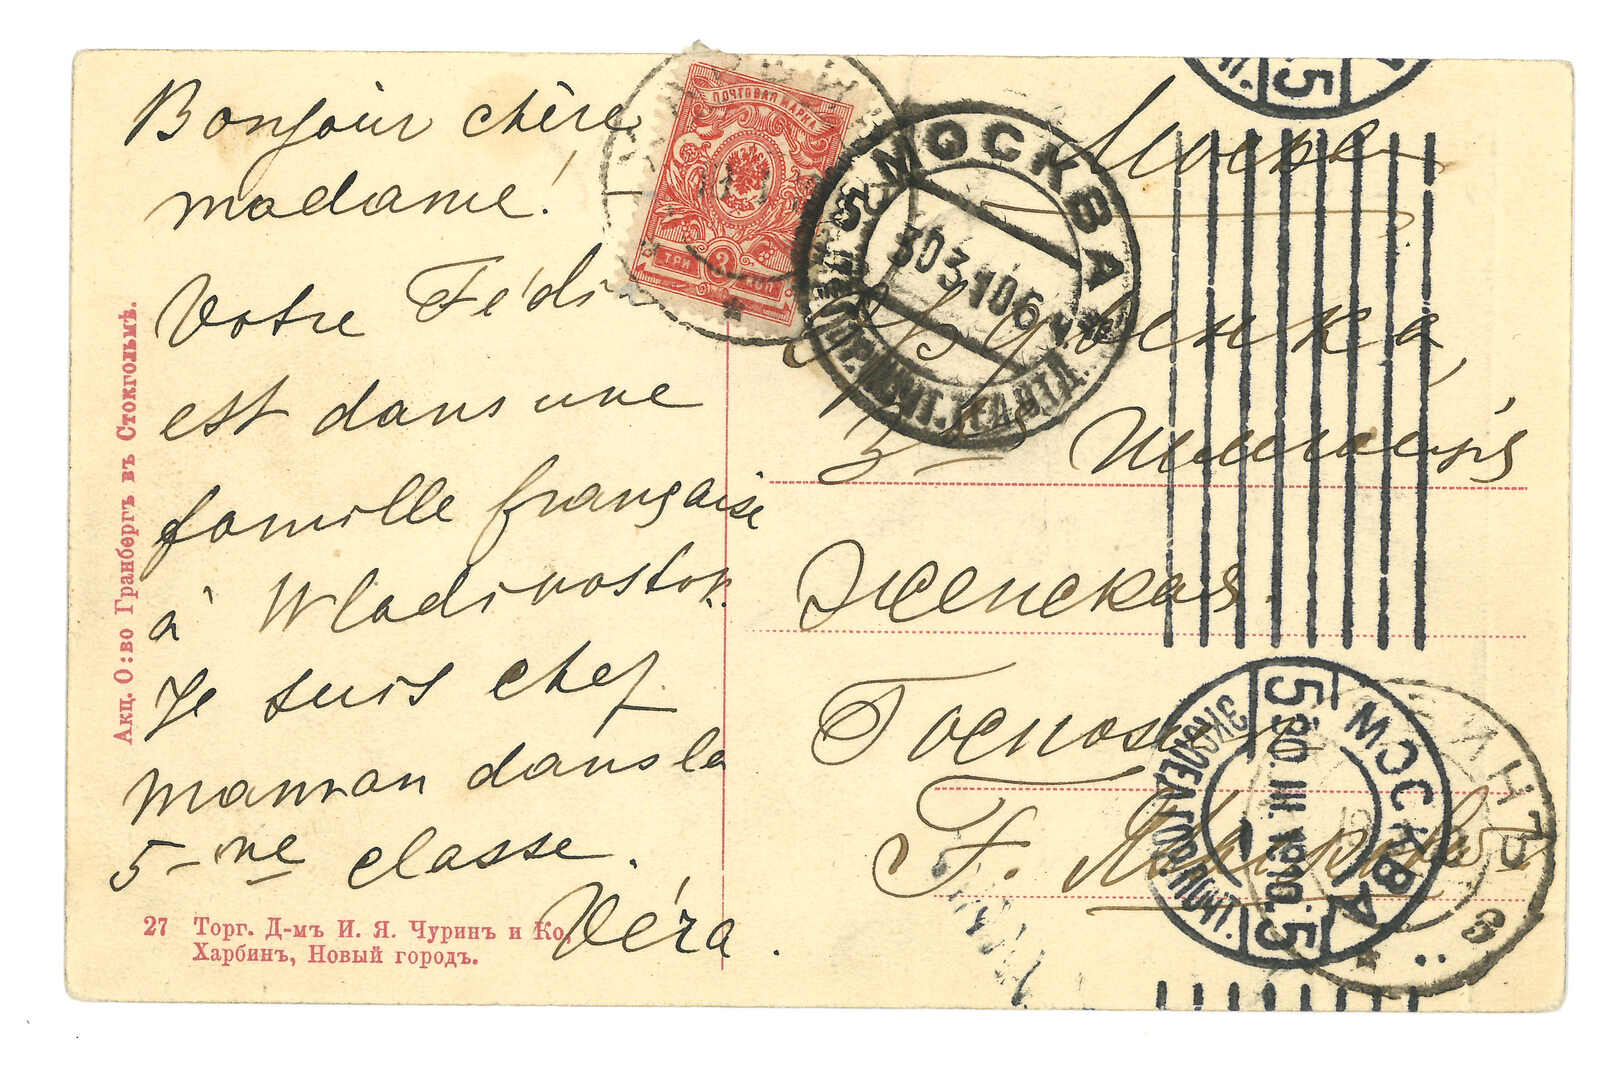 Bonjour chère
madame!
Votre Fédi
est dans une
famille française
à Wladivostok.
Je suis chef
maman dans la
5-me classe.
Véra.
Акц. О:во Гранбергъ въ Стокгольмѣ.
27 Торг. Д-мъ И. Я. Чуринъ и Ко,
Харбинъ, Новый городъ.
ПОЧТОВАЯ МАРКА
ТРИ 3 КОП
МОСКВА
30 3 10 6
Москва
3
Женская
Госпожѣ
МОСКВА
5 30. III. 1910. 5
5
3